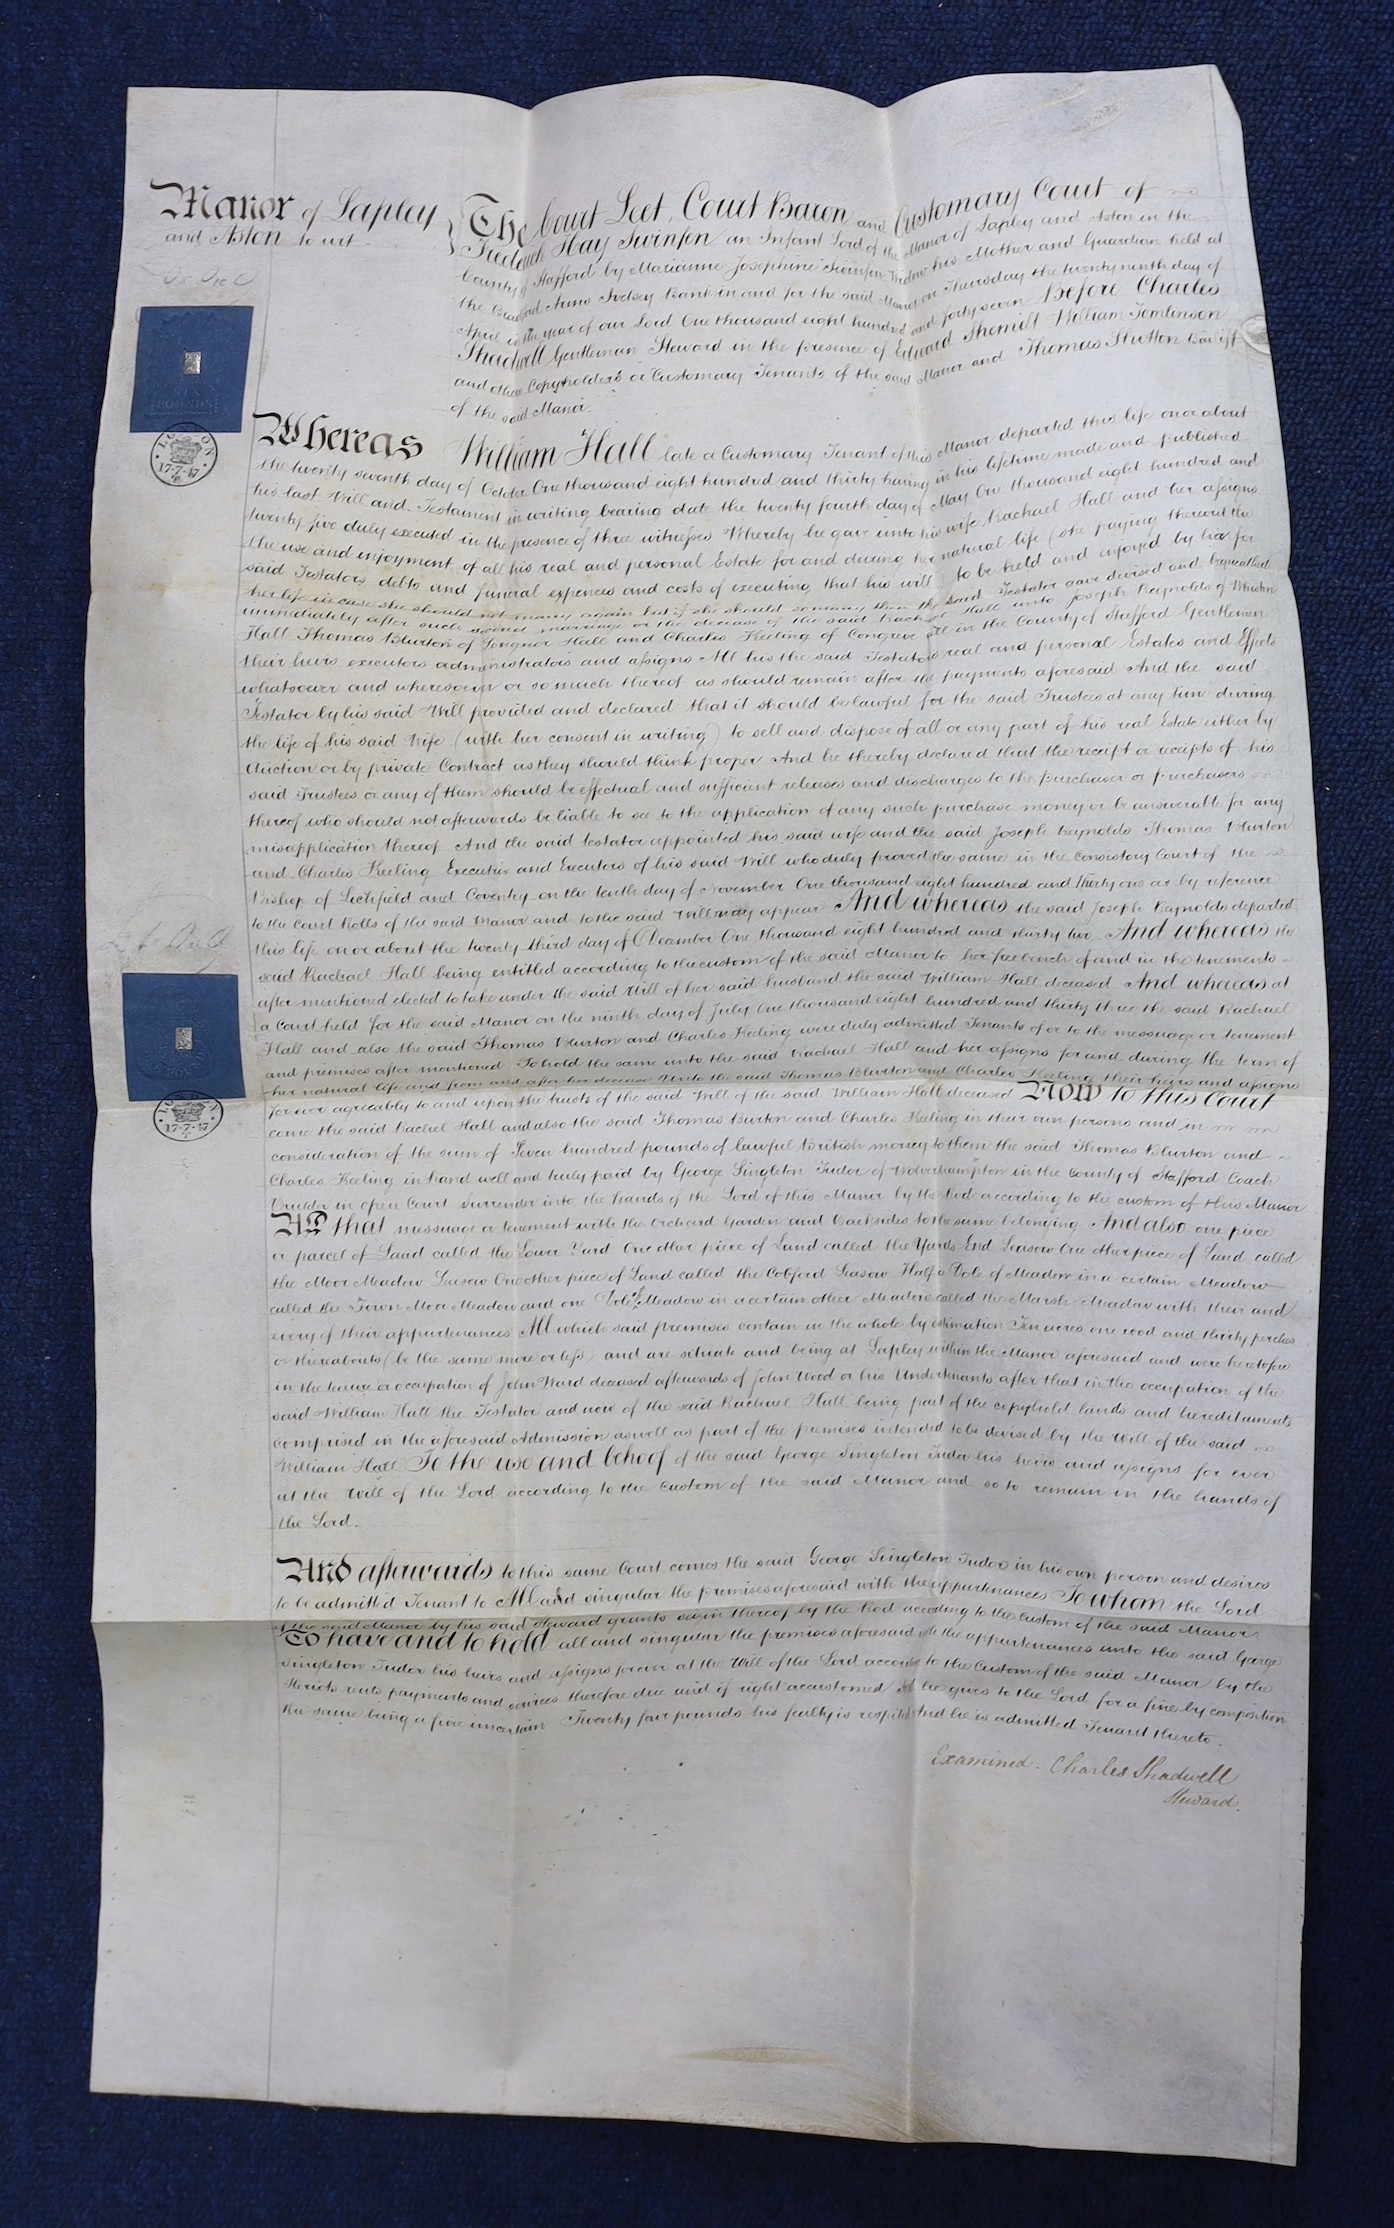 Manor of Lapley
and Aston to wit
The Court Leet, Court Baron and Customary Court of
Frederick Hay Swinfen an Infant Lord of the Manor of Lapley and Aston in the
County of Stafford by Marianne Josephine Swinfen Widow his Mother and Guardian held at
the Bradford Arms Ivetsey Bank in and for the said Manor on Thursday the twenty ninth day of
April in the year of our Lord One thousand eight hundred and forty seven Before Charles
Shadwell Gentleman Steward in the presence of Edward Sherratt William Tomlinson
and other Copyholders or Customary Tenants of the said Manor and Thomas Shotton Bailiff
of the said Manor.
POUNDS
LONDON
17-7-47
Whereas William Hall late a Customary Tenant of this Manor departed this life on or about
the twenty seventh day of October One thousand eight hundred and thirty having in his lifetime made and published
his last Will and Testament in writing bearing date the twenty fourth day of May One thousand eight hundred and
twenty five duly executed in the presence of three witnesses Whereby he gave unto his wife Rachael Hall and her assigns
the use and enjoyment of all his real and personal Estate for and during her natural life (she paying thereout the
said Testators debts and funeral expences and costs of executing that his will) to be held and enjoyed by her for
her life in case she should not marry again but if she should so marry then the said Testator gave devised and bequeathed
immediately after such second marriage or the decease of the said Rachael Hall unto Joseph Reynolds of Wheaton
Hall Thomas Blurton of Tongnor Hall and Charles Keeling of Congreve all in the County of Stafford Gentlemen
their heirs executors administrators and assigns All his the said Testators real and personal Estates and Effects
whatsoever and wheresoever or so much thereof as should remain after the payments aforesaid And the said
Testator by his said Will provided and declared that it should be lawful for the said Trustees at any time during
the life of his said Wife (with her consent in writing) to sell and dispose of all or any part of his real Estate either by
Auction or by private Contract as they should think proper And he thereby declared that the receipt or receipts of his
said Trustees or any of them should be effectual and sufficient releases and discharges to the purchaser or purchasers
thereof who should not afterwards be liable to see to the application of any such purchase money or be answerable for any
misapplication thereof And the said testator appointed his said wife and the said Joseph Reynolds Thomas Blurton
and Charles Keeling Executrix and Executors of his said Will who duly proved the same in the Consistory Court of the
Bishop of Lichfield and Coventry on the tenth day of November One thousand eight hundred and thirty one as by reference
to the Court Rolls of the said Manor and to the said Will may appear And whereas the said Joseph Reynolds departed
this life on or about the twenty third day of December One thousand eight hundred and thirty two And whereas the
said Rachael Hall being entitled according to the custom of the said Manor to her freebench of and in the tenements
after mentioned elected to take under the said Will of her said husband the said William Hall deceased And whereas at
a Court held for the said Manor on the ninth day of July One thousand eight hundred and thirty three the said Rachael
Hall and also the said Thomas Blurton and Charles Keeling were duly admitted Tenants of or to the messuage or tenement
and premises after mentioned To hold the same unto the said Rachael Hall and her assigns for and during the term of
her natural life and from and after her decease Unto the said Thomas Blurton and Charles Keeling their heirs and assigns
for ever agreeably to and upon the trusts of the said Will of the said William Hall deceased Now to this Court
come the said Rachel Hall and also the said Thomas Burton and Charles Keeling in their own persons and in
consideration of the sum of Seven hundred pounds of lawful British money to them the said Thomas Blurton and
Charles Keeling in hand well and truly paid by George Singleton Tudor of Wolverhampton in the County of Stafford Coach
Builder in open Court Surrender into the hands of the Lord of this Manor by the Rod according to the custom of this Manor
All that messuage or tenement with the Orchard Garden and Backsides to the same belonging And also one piece
or parcel of Land called the Lower Yard One other piece of Land called the Yards End Leasow One other piece of Land called
the Moor Meadow Leasow One other piece of Land called the Cobford Leasow Half a Dole of Meadow in a certain Meadow
called the Town Moor Meadow and one Dole of Meadow in a certain other Meadow called the Marsh Meadow with their and
every of their appurtenances All which said premises contain in the whole by estimation Ten acres one rood and thirty perches
or thereabouts (be the same more or less) and are situate and being at Lapley within the Manor aforesaid and were heretofore
in the tenure or occupation of John Ward deceased afterwards of John Wood or his Undertenants after that in the occupation of the
said William Hall the Testator and now of the said Rachael Hall being part of the copyhold lands and hereditaments
comprised in the aforesaid Admission as well as part of the premises intended to be devised by the Will of the said
William Hall To the use and behoof of the said George Singleton Tudor his heirs and assigns for ever
at the Will of the Lord according to the Custom of the said Manor and so to remain in the hands of
the Lord.
LONDON
17-7-47
And afterwards to this same Court comes the said George Singleton Tudor in his own person and desires
to be admitted Tenant to All and singular the premises aforesaid with the appurtenances To whom the Lord
of the said Manor by his said Steward grants seisin thereof by the Rod according to the Custom of the said Manor
To have and to hold all and singular the premises aforesaid with the appurtenances unto the said George
Singleton Tudor his heirs and assigns forever at the Will of the Lord according to the Custom of the said Manor by the
Heriots rents payments and services therefore due and of right accustomed And he gives to the Lord for a fine by composition
the same being a fine uncertain Twenty four pounds his fealty is respited And he is admitted Tenant thereto.
Examined. Charles Shadwell
Steward.